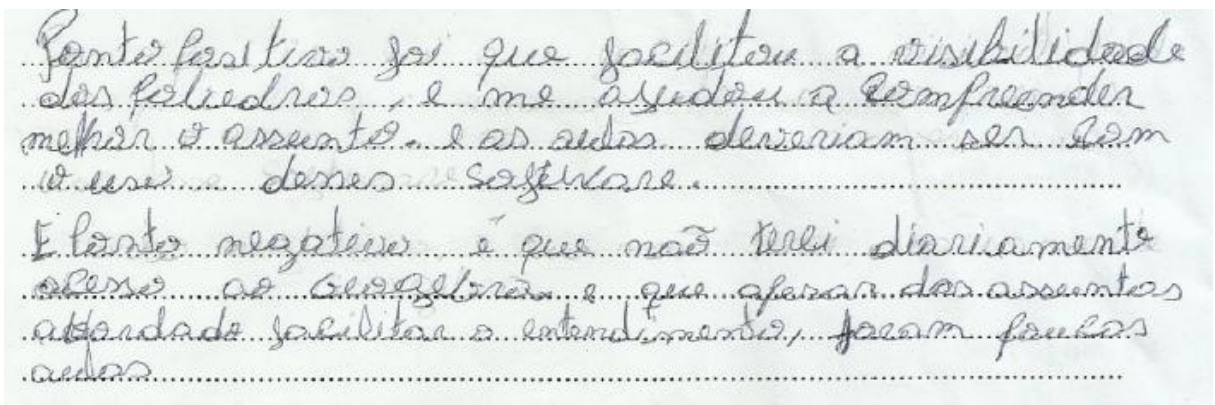 Ponto Positivo foi que facilitou a visibilidade
dos Poliedros, e me ajudou a compreender
melhor o assunto. e as aulas deveriam ser com
o uso desses software.
E Ponto negativo é que não terei diariamente
acesso ao GeoGebra. e que apesar dos assuntos
abordado facilitar o entendimento, foram poucas
aulas